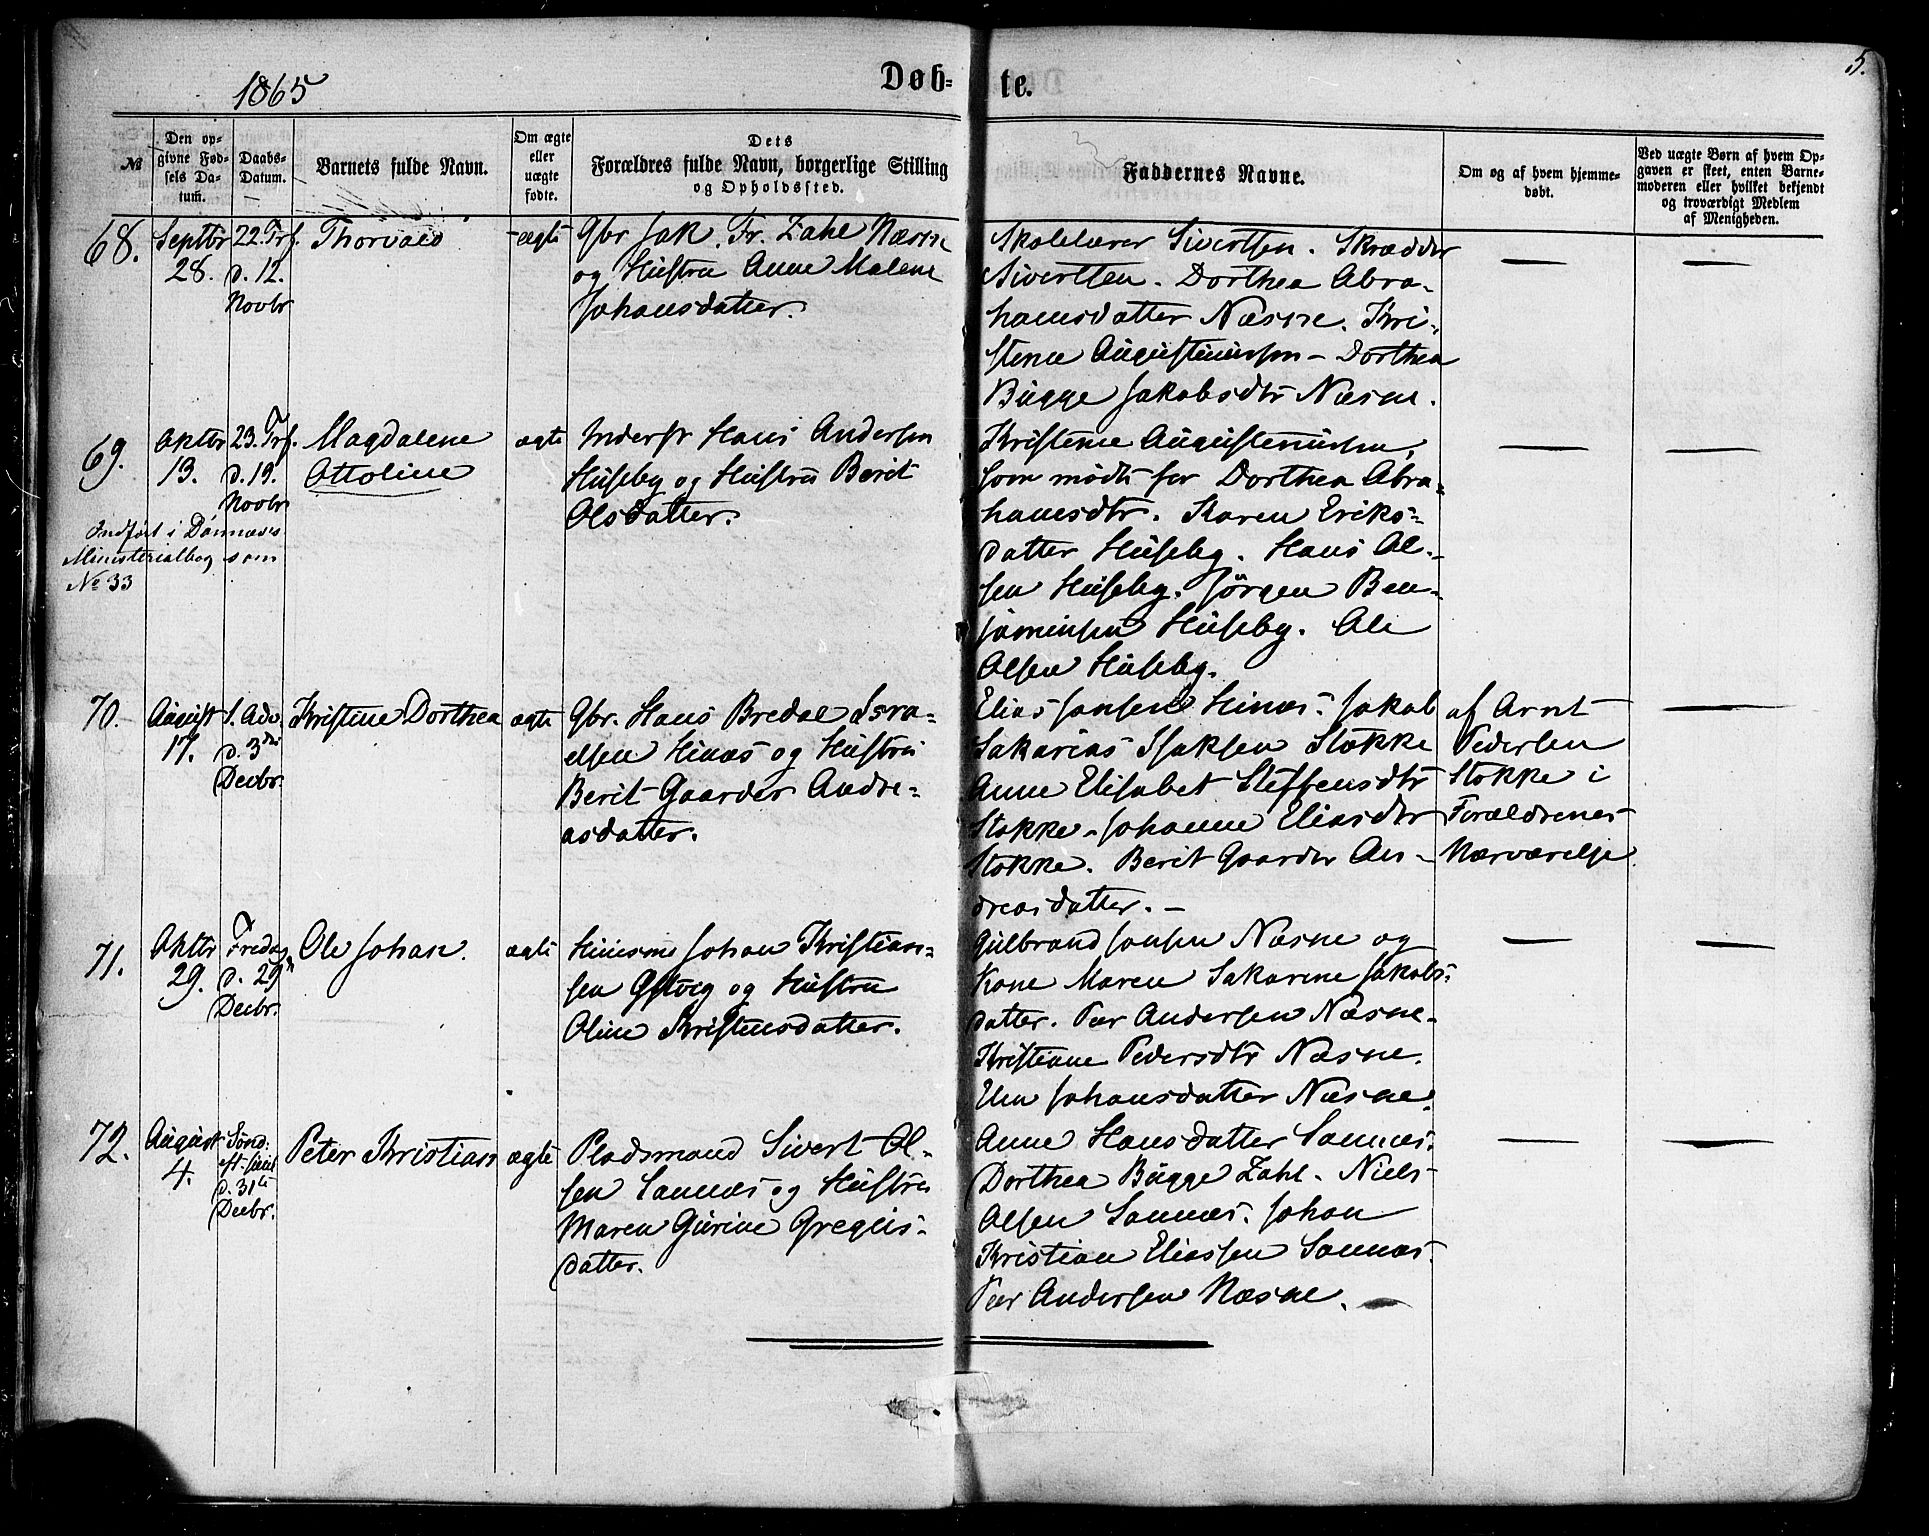 1865
Døb-
te.
5.
№
Den op-
givne Fød-
sels Da-
tum.
Daabs-
Datum.
Barnets fulde Navn.
Om ægte
eller
uægte
fødte.
Dets
Forældres fulde Navn, borgerlige Stilling
og Opholdssted.
Faddernes Navne.
Om og af hvem hjemme-
døbt.
Ved uægte Børn af hvem Op-
gaven er skeet, enten Barne-
moderen eller hvilket bekjendt
og troværdigt Medlem
af Menigheden.
68.
Septbr
28.
22. Trf.
d. 12.
Novbr
Thorvald
ægte
Gbr. Jak. Fr. Zahl Næsne
og Hustru Anne Malene
Johansdatter.
Skolelærer Sivertsen. Skrædder
Sivertsen. Dorthea Abra-
hamsdatter Næsne. Kri-
stense Augustinussen - Dorthea
Bugge Jakobsdtr Næsne.
69.
Oktbr
13.
23. Trf.
d. 19.
Novbr
Magdalene
Ottoline
ægte
Inderst Hans Andersen
Huseby og Hustru Berit
Olsdatter.
Indført i Dønnæs
Ministerialbog som
No 33
Kristense Augustenussen,
som mødte for Dorthea Abra-
hamsdtr. Karen Eriks-
datter Huseby. Hans Ol-
sen Huseby. Jörgen Ben-
jaminsen Huseby. Ole
Olsen Huseby.
70.
August
17.
1. Adv.
d. 3die
Decbr.
Kristine Dorthea
ægte
Gbr. Hans Bredal Isra-
elsen Hinæs og Hustru
Berit Gaarder Andre-
asdatter.
Elias Jansen Hinæs. Jakob
Sakarias Isaksen Stokke
Anne Elisabet Steffensdtr
Stokke - Johanne Eliasdtr
Stokke. Berit Gaarder An-
dreasdatter. -
af Arnt
Pedersen
Stokke i
Forældrenes
Nærværelse
71.
Oktbr
29.
Fredag
d. 29
Decbr.
Ole Johan.
ægte
Huusm Johan Kristian-
sen Østvig og Hustru
Oline Kristensdatter.
Gulbrand Jansen Næsne og
Kone Maren Sakarine Jakobs-
datter. Peer Andersen Næsne-
Kristiane Pedersdtr Næsne.
Elen Johansdatter Næsne.
72.
August
4.
Sönd.
eft. Juul
d. 31te
Decbr.
Peter Kristian
ægte
Pladsmand Sivert Ol-
sen Sannæs og Hustru
Maren Gurine Gregus-
datter.
Anne Hansdatter Sannæs.
Dorthea Bugge Zahl. Niels
Olsen Sannæs. Johan
Kristian Eliassen Sannæs.
Peer Andersen Næsne.